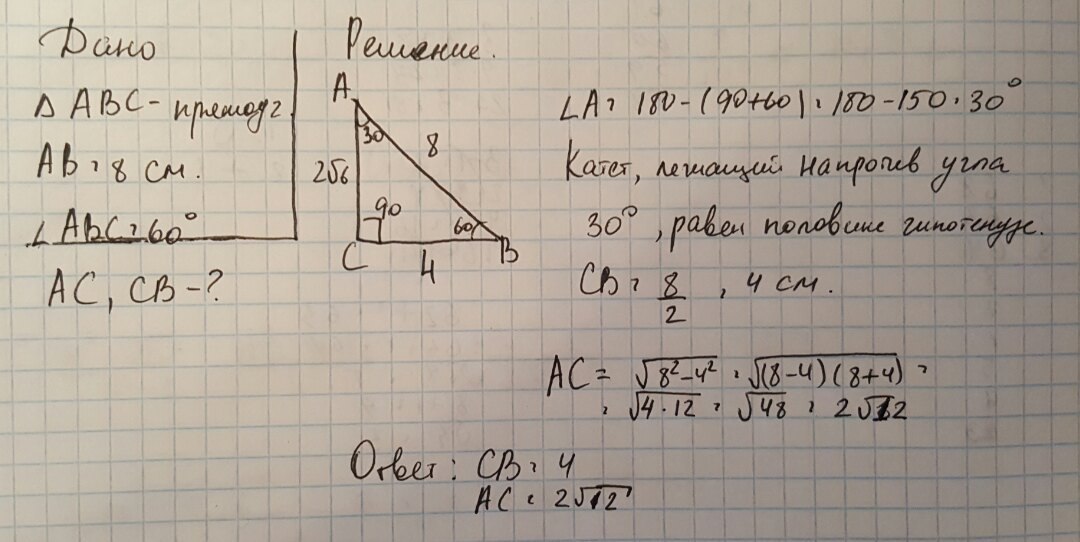 Дано
Δ ABC - прямоуг
AB = 8 см.
∠ABC = 60°
AC, CB - ?
Решение.
A
30
8
2√6
90
60
C
4
B
∠A = 180 - (90+60) = 180 - 150 = 30°
Катет, лежащий напротив угла
30°, равен половине гипотенузе.
CB = 8/2 = 4 см.
AC = √8²-4² = √(8-4)(8+4) =
= √4·12 = √48 = 2√12
Ответ: CB = 4
AC = 2√12